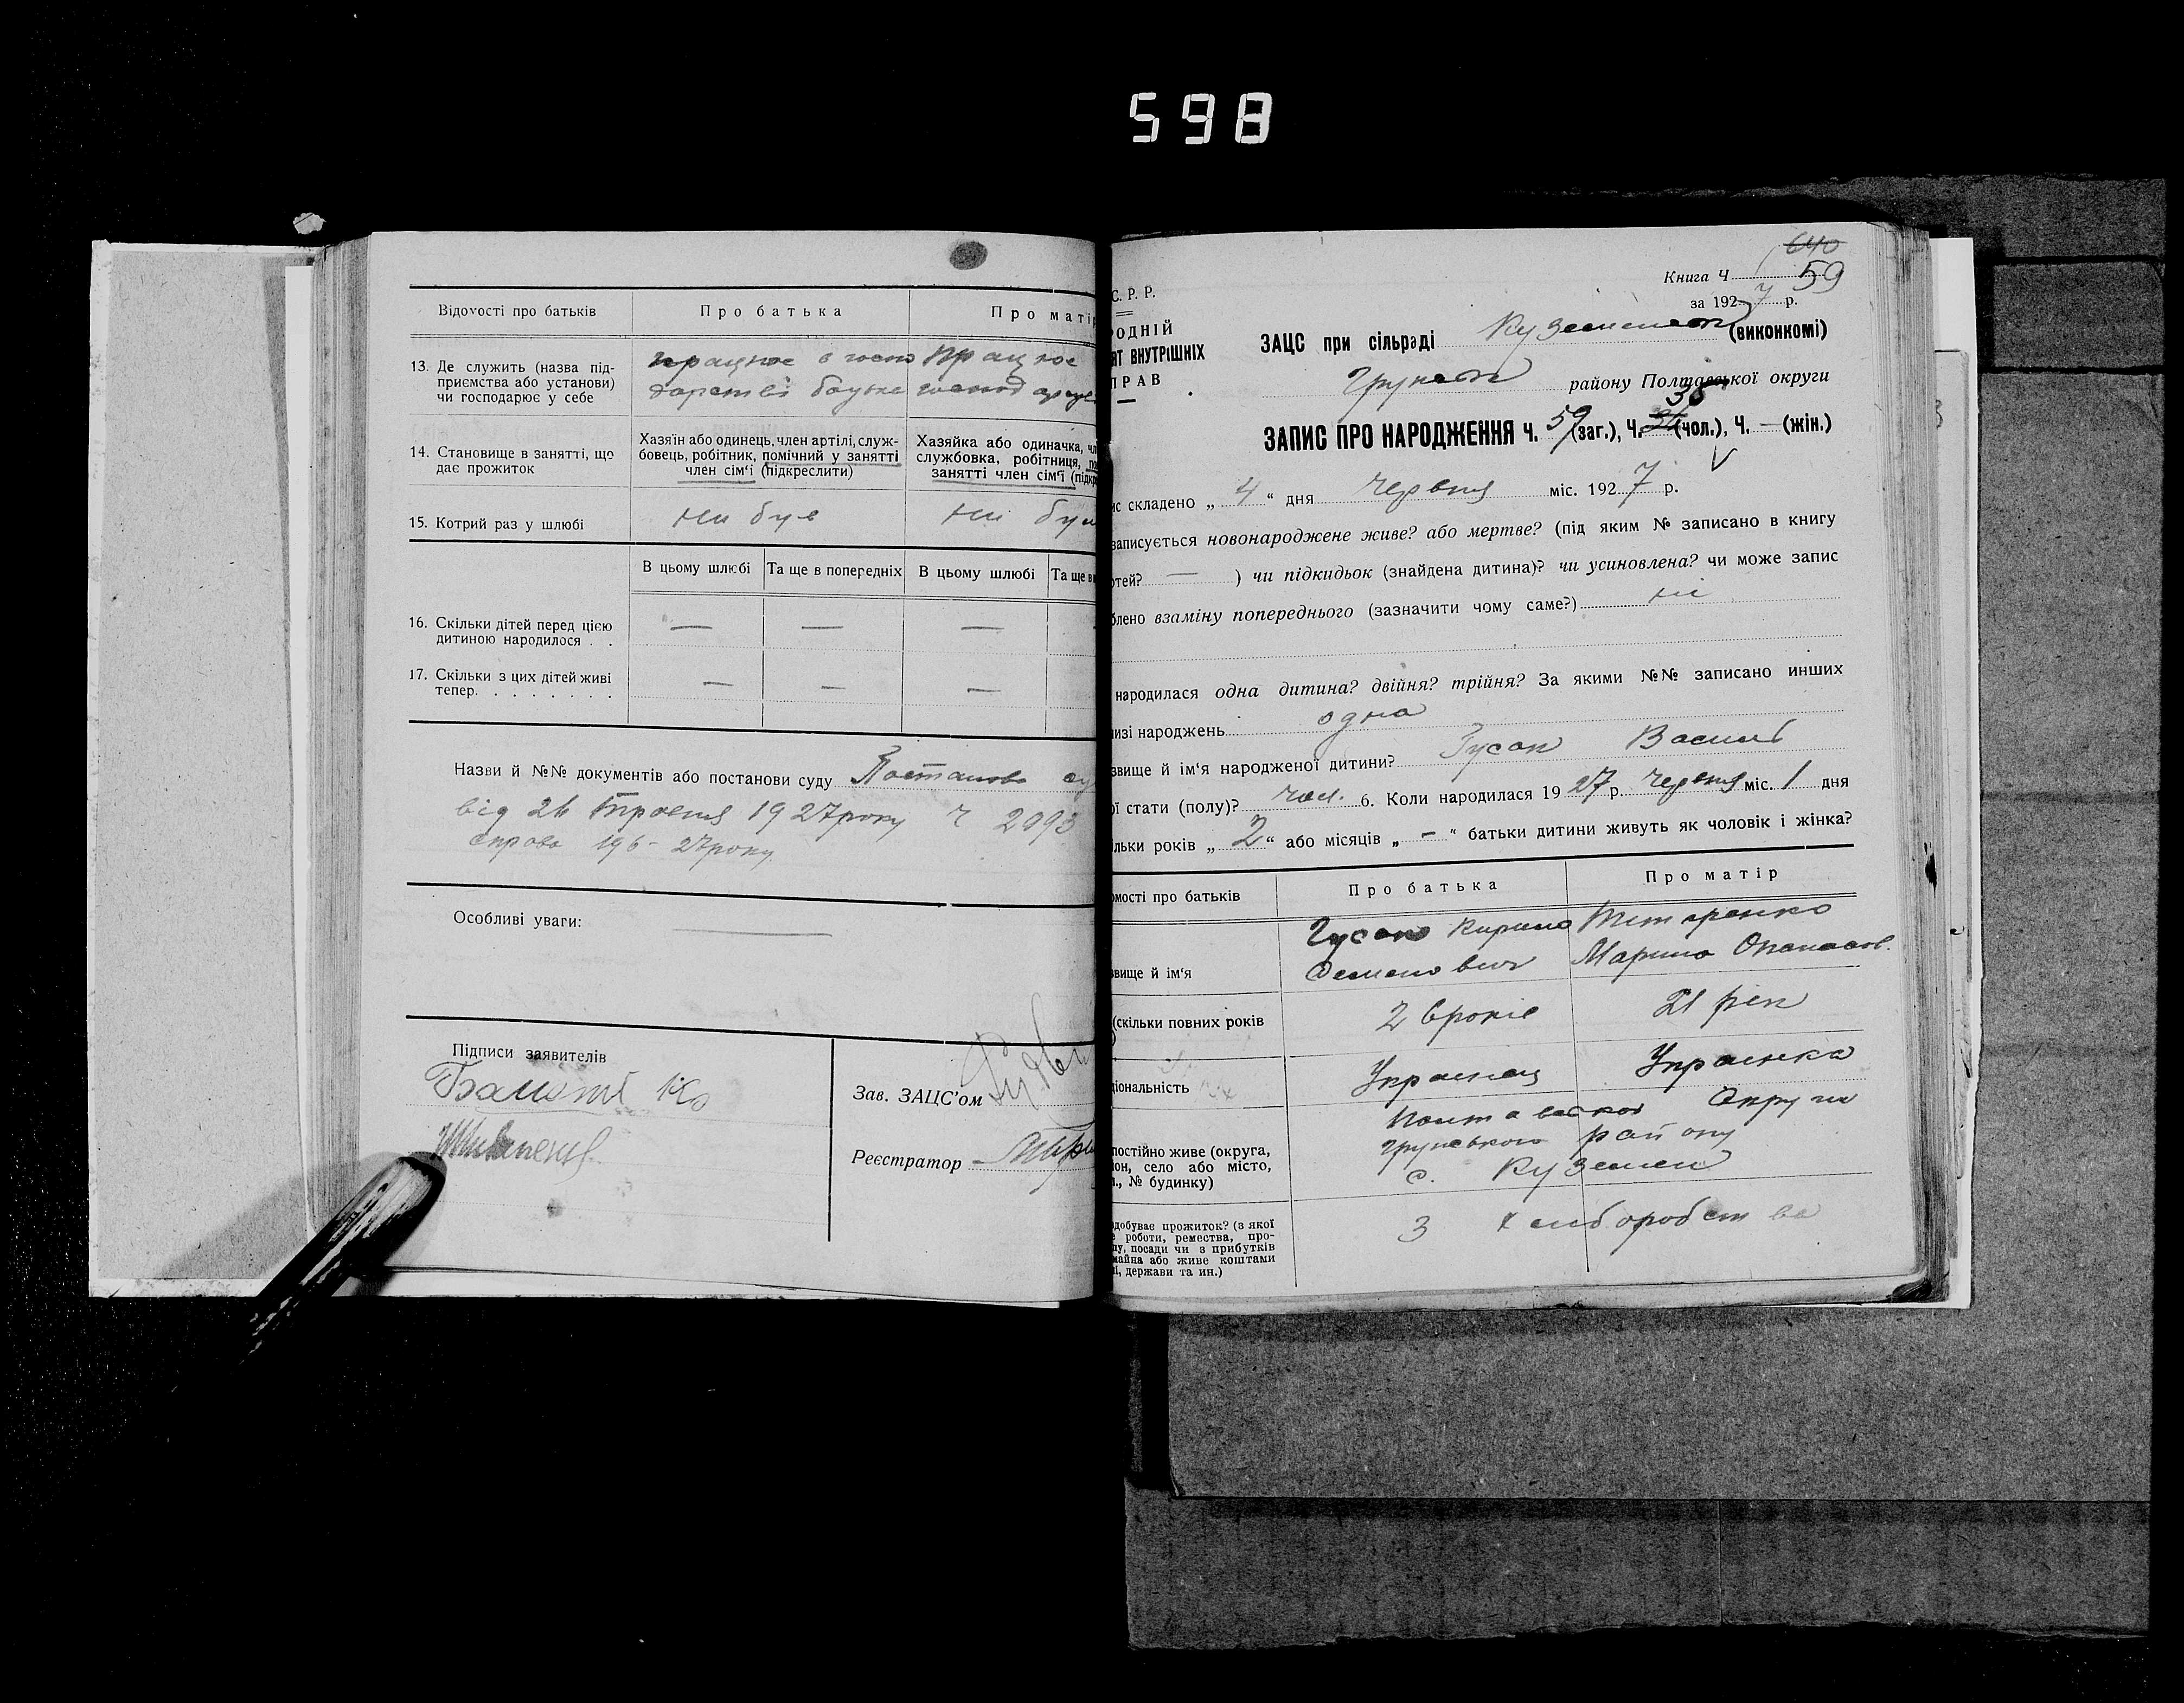 598
Відомості про батьків
Про батька
Про матір
13. Де служить (назва під-
приємства або установи)
чи господарює у себе
працює в госпо
дарстві батька
працює
14. Становище в занятті, що
дає прожиток
Хазяїн або одинець, член артілі, служ-
бовець, робітник, помічний у занятті
член сім'ї (підкреслити)
Хазяйка або одиначка, чл
службовка, робітниця, по
занятті член сім'ї (підкр
15. Котрий раз у шлюбі
не був
не бул
В цьому шлюбі
Та ще в попередніх
В цьому шлюбі
Та ще в
16. Скільки дітей перед цією
дитиною народилося . .
— — —
17. Скільки з цих дітей живі
тепер. . . . . . . .
— — —
Назви й №№ документів або постанови суду Постанова су
від 26 травня 1927 року ч 2093
справа 196 - 27 року
Особливі уваги: —
Підписи заявителів
Зав. ЗАЦС'ом
Реєстратор
640
Книга Ч 59
за 1927 р.
С. Р. Р.
РОДНІЙ
ЯТ ВНУТРІШНІХ
ПРАВ
—
ЗАЦС при сільраді (виконкомі)
району Полтавської округи
ЗАПИС ПРО НАРОДЖЕННЯ Ч. 59 (заг.), Ч. 38 (чол.), Ч. — (жін.)
ис складено „ 4 “ дня червня міс. 1927 р.
записується новонароджене живе? або мертве? (під яким № записано в книгу
ртей? — ) чи підкидьок (знайдена дитина)? чи усиновлена? чи може запис
блено взаміну попереднього (зазначити чому саме?) ні
народилася одна дитина? двійня? трійня? За якими №№ записано инших
низі народжень одна
звище й ім'я народженої дитини? Гусак Василь
ої стати (полу)? чол. 6. Коли народилася 1927 р. червня міс. 1 дня
ільки років „ 2 “ або місяців „ — “ батьки дитини живуть як чоловік і жінка?
омості про батьків
Про батька
Про матір
звище й ім'я
Гусак Кирило
Семенович
Титаренко
Марина Опанасов.
(скільки повних років
26 років
21 рік
ціональність
Українец
Українка
постійно живе (округа,
он, село або місто,
л., № будинку)
Полтавської Округи
Грунського району
с. Куземен
добуває прожиток? (з якої
е роботи, ремества, про-
лу, посади чи з прибутків
майна або живе коштами
і, держави та ин.)
З хліборобства